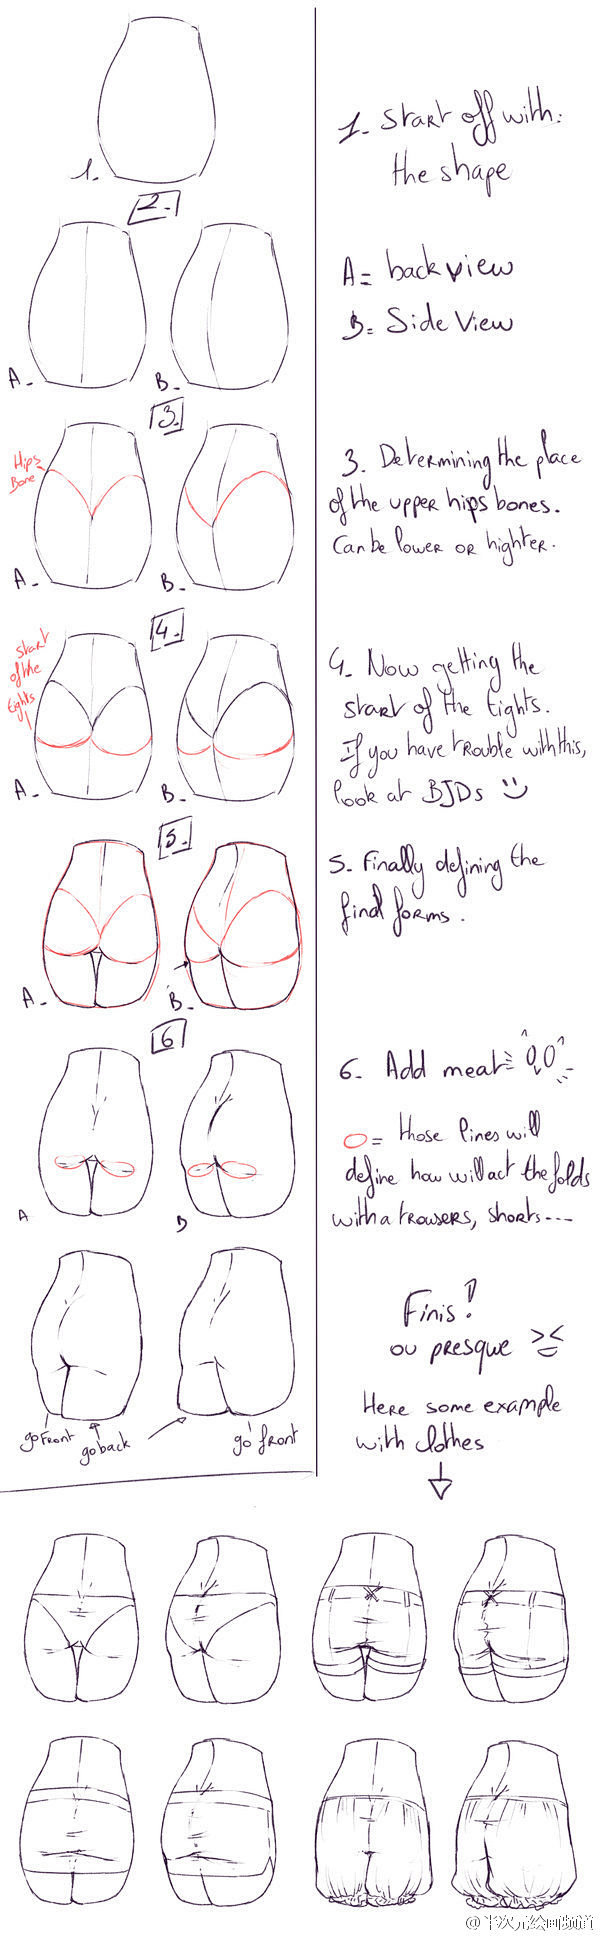 1.
1. Start off with:
the shape
2.
A=back view
B=Side View
A-
B-
3.
Hips
Bone
A-
B-
3. Determining the place
of the upper hips bones.
Can be lower or highter.
4.
start
of the
tights
A-
B-
4. Now getting the
start of the tights.
If you have trouble with this,
look at BJDs
5.
A-
B-
5. Finally defining the
final forms.
6
A
B
6. Add meat
= those lines will
define how will act the folds
with a trousers, shorts---
Finis!
ou presque ><
go front
go back
go front
Here some example
with clothes
@半次元绘画频道